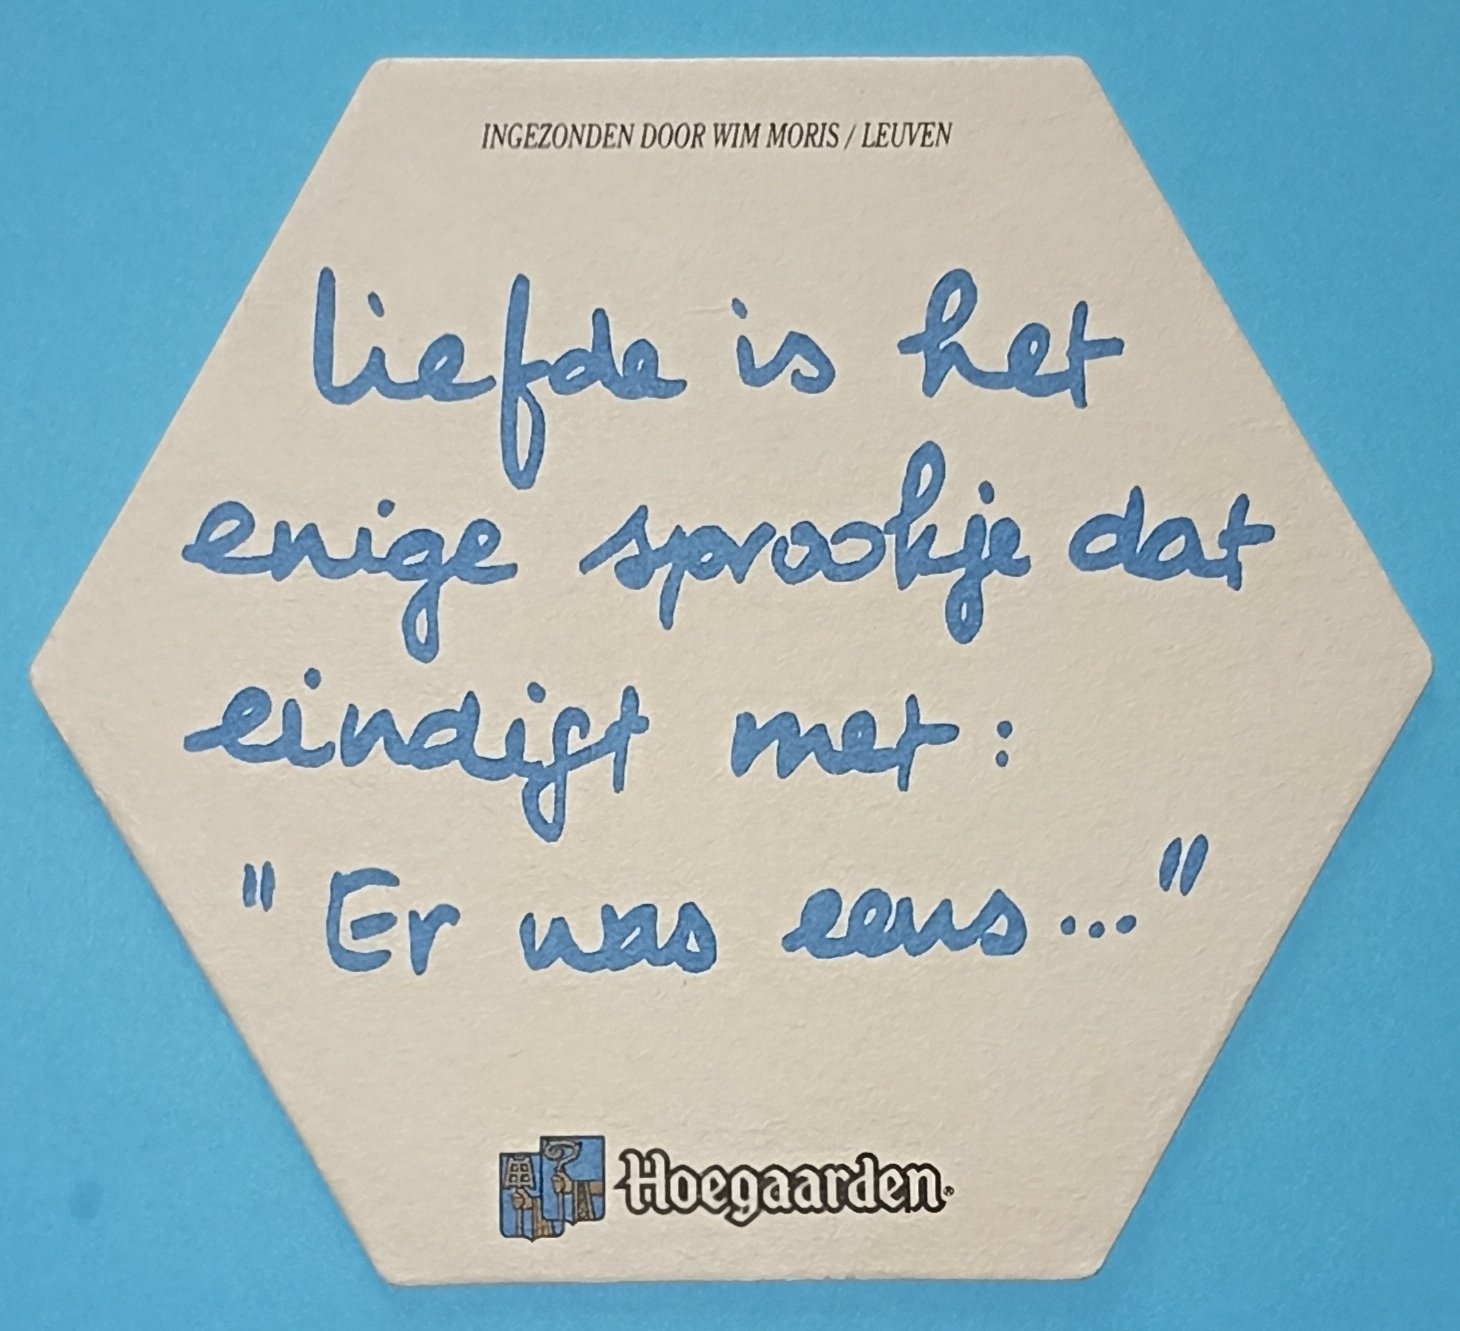 INGEZONDEN DOOR WIM MORIS / LEUVEN
liefde is het
enige sprookje dat
eindigt met:
"Er was eens..."
Hoegaarden®